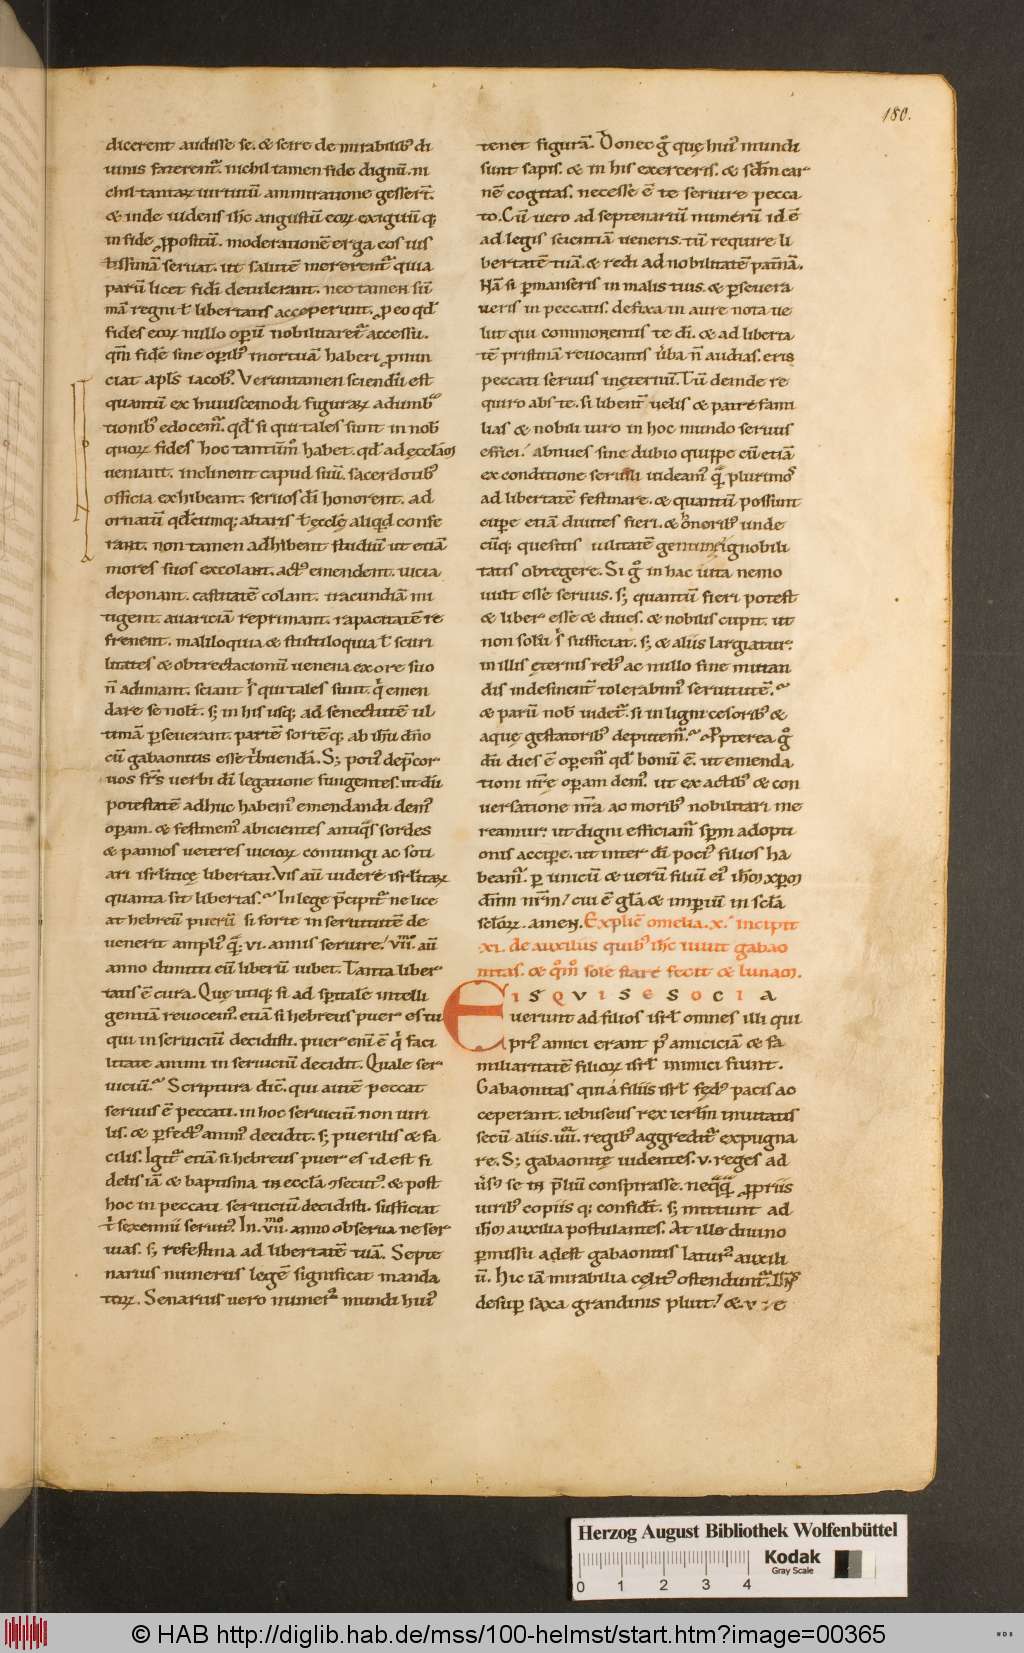 180.
dicerent audisse se. & scire de mirabilib' di
uinis faterent̃. nichil tamen fide dignũ. ni
chil tantaꝝ uirtutũ ammiratione gesserῖ.
& inde uidens ih̃c angustũ eoꝝ exiguũ q;
in fide ꝓpositũ. moderationẽ erga eos ius
tissimam seruat. ut salutẽ mererent̃ quia
parũ licet fidei detulerant. nec tamen sum̃
mã regni ł libertatis acceperunt. ꝓ eo qd̃
fides eoꝝ nullo opeꝝ nobilitaret̃ accessu.
qm̃ fidẽ sine opib' mortuã haberi ꝓnun
ciat apl̃s iacob'. Veruntamen sciendũ est
quantũ ex huiuscemodi figuraꝝ adumb̾
tionib' edocem̃. qd̃ si qui tales sunt in nob̃
quoꝝ fides hoc tantũm̃ habet. qd̃ ad ęcclãm
ueniant. inclinent capud suũ. sacerdotib'
officia exhibeant. seruos dĩ honorent. ad
ornatũ qd̃cumq; altaris ł ęccłę aliqd conse
rant. non tamen adhibent studiũ ut etiã
mores suos excolant. act' emendent. uicia
deponant. castitatẽ colant. iracundiã mi
tigent. auariciã reprimant. rapacitatẽ re
frenent. maliloquia & stultiloquia ł scurri
litates & obtrectacionũ uenena ex ore suo
ñ adimant. sciant s̾ qui tales sunt. q̾ emen
dare se nolt̃. s; in his usq; ad senectutẽ ul
timã ꝑseuerant. partẽ sortẽ q; ab ih̃u dño
cũ gabaonitis esse t̾buendã. S; poti' dep̃cor
uos fr̃s uerbi dĩ legatione fungentes. ut dũ
potestatẽ adhuc habem' emendandi dem'
operam. & festinem' abicientes antiq̃s sordes
& pannos ueteres uicioꝝ coniungi ac soti
ari isrł̃iticę libertati. Vis aũt uidere isrł̃itaꝝ
quanta sit libertas.? In lege p̃cipit̃ ne lice
at hebreũ pueꝝ si forte in seruitutẽ de
uenerit ampl' q̃. vi. annis seruire! vii̾. aũ
anno dimitti eũ liberũ iubet. Tanta liber
tatis ẽ cura. Quę utiq; si ad sp̃italẽ intelli
gentiã reuocem'. etiã si hebreus puer es tu
qui in seruiciũ decidisti. puer eniῖ ẽ q̾ faci
litate animi in seruiciũ decidit. Quale ser
uiciũ.? Scriptura dic̃. qui autẽ peccat
seruus ẽ peccati. in hoc seruiciũ non uiri
lis. & ꝑfect' anim' decidit. s; puerilis & fa
cilis. Igit̃ etiã si hebreus puer es id est fi
delis iã & baptisma in ecclã ɔsecut'. & post
hoc in peccati seruiciũ decidisti. sufficiat
t̾ sexennii seruit'. In. vii. anno obserua ne ser
uias. s; refestina ad libertatẽ tuã. Septe
narius numerus legẽ significat manda
toꝝ. Senarius uero numer' mundi hui'
tenet figurã. Donec g̾ quę hui' mundi
sunt sapis. & in his exerceris. & scd̃m car
nẽ cogitas. necesse ẽ te seruire pecca
to. Cũ uero ad septenariũ numerũ id ẽ
ad legis scientiã ueneris. tũ require li
bertatẽ tuã. & redi ad nobilitatẽ pat̾nã.
Nã si ꝑmanseris in malis tuis. & ꝑseuera
ueris in peccatis. defixa in aure nota ue
lut qui commonentis te dĩ. & ad liberta
tẽ pristinã reuocantis ũba ñ audias. eris
peccati seruus in ęternũ. Tũ deinde re
quiro abs te. si libent̾ uelis & patrẽ fami
lias & nobili uiro in hoc mundo seruus
effici.! abnues sine dubio quippe cũ etiã
ex conditione seruili uideam' q̃ plurimos
ad libertatẽ festinare. & quantũ possunt
cuꝑe etiã diuites fieri. & honorib' unde
cũq; quesitis uilitatẽ generis ignobili
tatis obtegere. Si g̾ in hac uita nemo
uult esse seruus. s; quantũ fieri potest
& liber esse & diues. & nobilis cupit. ut
non solũ s̾ sufficiat. s; & aliis largiatur.
in illis ęternis reb' ac nullo fine mutan
dis indesinent̾ tolerabim' seruitutẽ.?
& parũ nob̃ uidet̃. si in ligni cesorib' &
aquę gestatorib' deputem̃.? Propterea g̾
dũ dies ẽ operem̃ qd̃ bonũ ẽ. ut emenda
tioni nr̃ę operam dem'. ut ex actib' & con
uersatione nr̃a ac morib' nobilitari me
reamur. ut digni efficiam̃ sp̃m adopti
onis accipe. ut inter dĩ poci' filios ha
beam̃. ꝑ unicũ & uerũ filiũ ei' ih̃m xp̃m
dñm nr̃m! cui ẽ gl̃a & imperiũ in scl̃a
scl̃oꝝ. amen. Explic̃ omelia. x. Incipit
.xi. de auxiliis quib' ih̃c iuuit gabao
nitas. & qm̃ sole stare fecit & lunam.
EISQVI SE SOCIA
uerunt ad filios isrł omnes illi qui
pri' amici erant ꝓ amiciciã & fa
miliaritatẽ filioꝝ isrł inimici fiunt.
Gabaonitas qui a filiis isrł fęd' pacis ac
ceperant. iebuseus rex ierłm inuitatis
secũ aliis. iiii. regib' aggredit̃ expugna
re. S; gabaonitę uidentes. v. reges ad
ũs' se in p̃liũ conspirasse. neq̃q̃ ꝓpriis
uirib' copiis q; confidt̃. s; mittunt ad
ih̃m auxilia postulantes. At ille diuino
ꝑmissu adest gabaonitis latur' auxili
ũ. Hic iã mirabilia cęlit' ostendunt̃.
desuꝑ saxa grandinis pluit! &
Herzog August Bibliothek Wolfenbüttel
0 1 2 3 4
Kodak
Gray Scale
© HAB http://diglib.hab.de/mss/100-helmst/start.htm?image=00365